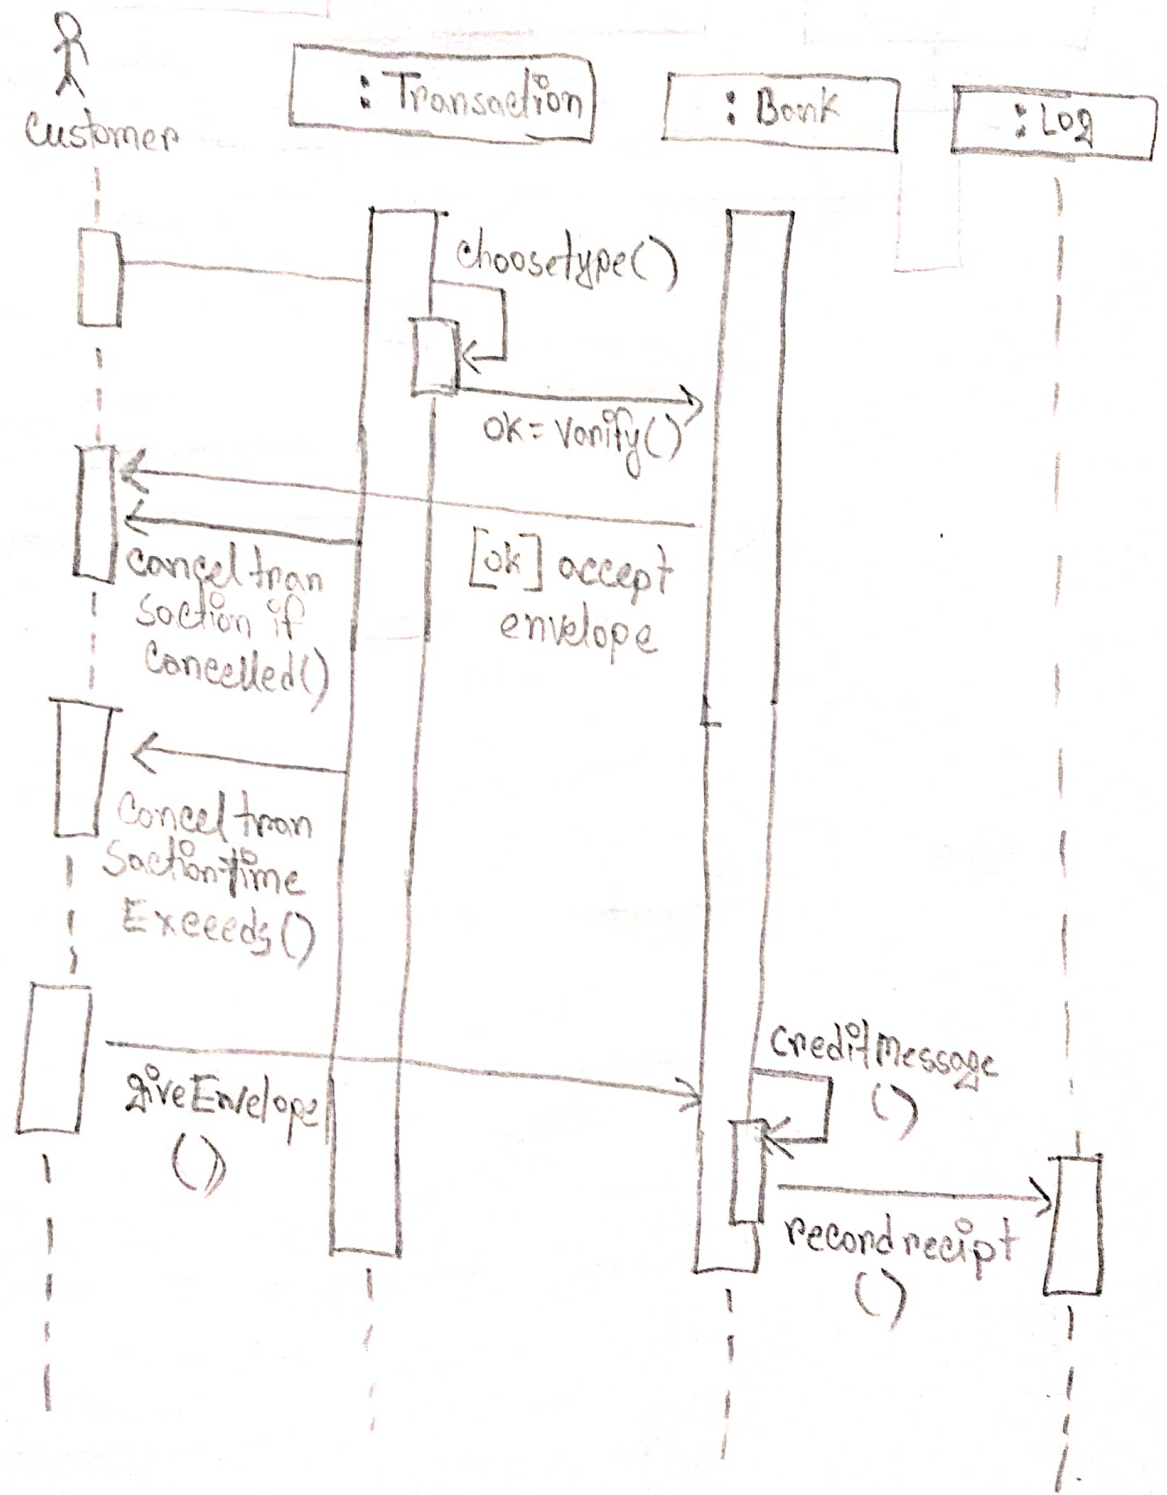 Customer
: Transaction
: Bank
: Log
choosetype()
ok = Varify()
[ok] accept
envelope
cancel tran
saction if
cancelled()
Cancel tran
saction time
Exceeds()
giveEnvelope
()
creditMessage
()
record recipt
()